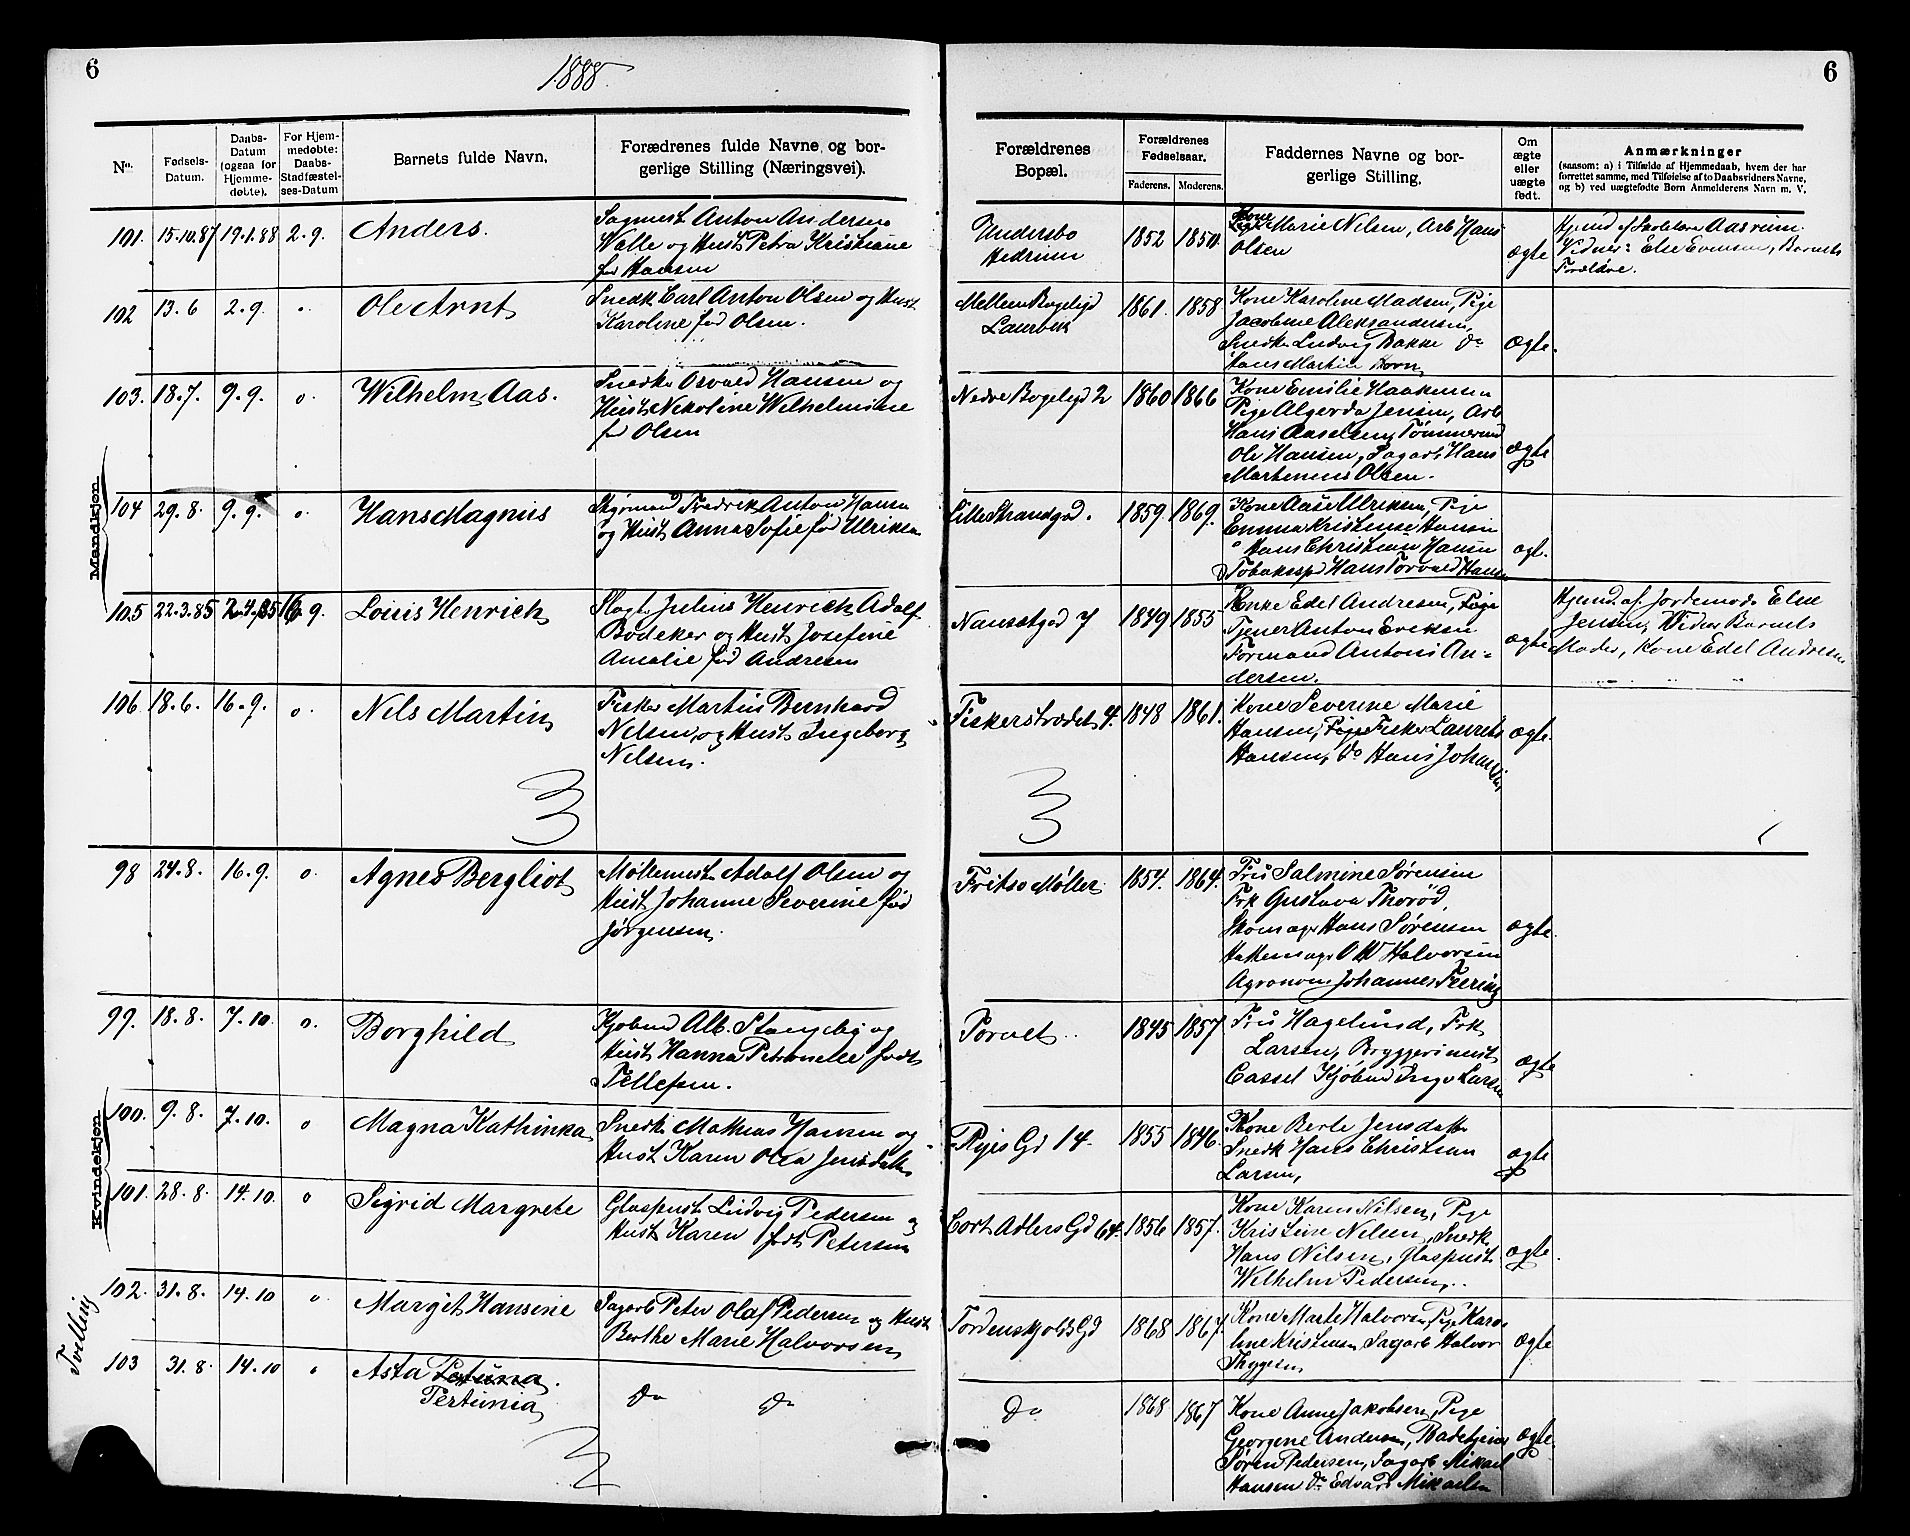 6
1888.
6
No.
Fødsels-
Datum.
Daabs-
Datum
(ogsaa for
Hjemme-
døbte).
For Hjem-
medøbte:
Daabs-
Stadfæstel-
ses-Datum
Barnets fulde Navn.
Forældrenes fulde Navne og bor-
gerlige Stilling (Næringsvei).
Forældrenes
Bopæl.
Forældrenes
Fødselsaar.
Faderens.
Moderens.
Faddernes Navne og bor-
gerlige Stilling.
Om
ægte
eller
uægte
født.
Anmærkninger
(saasom: a) i Tilfælde af Hjemmedaab, hvem der har
forrettet samme, med Tilføielse af to Daabsvidners Navne,
og b) ved uægtefødte Børn Anmelderens Navn m. V.
Mandkjøn
101. 15.10.87 19.1.88 2.9. Anders.
Sagmest Anton Andersen
Walle og Hust Petra Kristiane
fød Hansen
Undersbo
Hedrum
1852 1850.
Kone
Marie Nilsen, Arb Hans
Olsen
ægte
Hjemd af Skolelærer Aasrum
Vidner: Else Evensen, Barnets
Forældre.
102 13.6 2.9. Ole Arnt
Snedk Carl Anton Olsen og Hust
Karoline fød Olsen.
Mellem Bøgeligd
Laurvik
1861. 1858
Kone Karoline Madsen, Pige
Jacobine Aleksandersen,
Snedker Ludvig Bakke do
Hans Martin Horn
ægte.
103. 18.7. 9.9. o. Wilhelm Aas.
Snedker Osvald Hansen og
Hust Nikoline Wilhelmine
fød Olsen
Nedre Bøgeligd 2
1860 1866
Kone Emilie Haakensen
Pige Algerda Jensen, Arb
Hans Axelsen, Tømmermd
Ole Hansen, Sagarb Hans
Martinius Olsen.
ægte
104 29.8. 9.9. o. Hans Magnus
Styrmand Fredrik Anton Hansen
og Hust Anna Sofie fød Ulriksen
Lille Strandgd.
1859. 1869.
Kone Aase Ulriksen, Pige
Emma Kristense Hansen
Hans Christian Hansen
Tobaksspd Hans Torvald Hansen
ægt.
105 22.3.85 2.4.85 16.9. Louis Henrich
Slagt. Julius Henrich Adolf
Bödeker og Hust Josefine
Amalie fød Andresen
Nansetgd 7
1849 1855
Enke Edel Andresen, Pige
Tjener Anton Eriksen
Formand Antoni An-
dersen.
ægte
Hjemd. af Jordemod. Else
Jensen, Vidner Barnets
Moder, Kone Edel Andresen
106 18.6. 16.9. o. Nils Martin
Fisker Martin Bernhard
Nelsen, og Hust Ingeborg
Nelsen.
Fiskerstrædet 4.
1848 1861.
Kone Severine Marie
Hansen, Pige Fisker Laurits
Hansen, do Hans Johansen
ægte.
3
3
Kvindekjøn
98 24.8. 16.9. o. Agnes Bergliot
Møllemest. Adolf Olsen og
Hust Johanne Severine fød
Jørgensen.
Fritso Møller
1854. 1864.
Fru Salmine Sørensen
Frk Gustava Thorød,
Skomager Hans Sørensen
O W Halvorsen
Agronom Johannes Feering
ægte.
99. 18.8. 7.10. o. Borghild
Kjøbmd Alb. Stangeby og
Hust Hanna Petronelle født
Tellefsen.
Torvet..
1845 1857
Fru Hagelund, Frk
Larsen, Bryggerimest
Cassel Kjøbmd Inga Larsen
ægte
100. 9.8. 7.10. o Magna Kathinka
Snedk Mathias Hansen og
Hust Karen Olea Jensdatter
Ryes Gd 14.
1855 1846.
Kone Berte Jensdatter
Snedk Hans Christian
Larsen,
ægte
101. 28.8. 14.10 o Sigrid Margrete
Glaspust Ludvig Pedersen og
Hust Karen født Petersen
Cort Adlers Gd 64.
1856 1857.
Kone Karen Nilsen, Pige
Kristine Nilsen, Snedk
Hans Nilsen, Glaspust
Wilhelm Pedersen,..
ægte.
Tvelling
102. 31.8. 14.10 o Margit Hansine
Sagarb Peter Olaf Pedersen og Hust
Berthe Marie Halvorsen
Tordenskjolds Gd
1868 1867.
Kone Marte Halvorsen, Pige Karo-
line Kristensen Sagarb Halvor
Thygesen
ægte
103 31.8. 14.10 Asta Petuna.
Pertunia
do do
do
1868 1867
Kone Anne Jakobsen, Pige
Georgene Andersen, Badetjener
Søren Pedersen, Sagarb Mikael
Hansen do Edvard Mikaelsen
ægte.
3